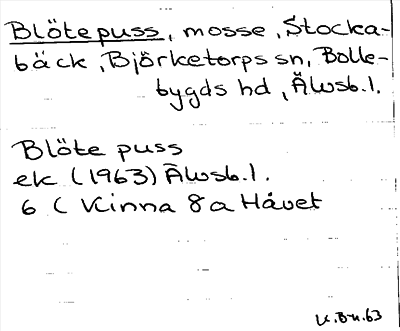 Blötepuss, mosse, Stocka-
bäck, Björketorps sn, Bolle-
bygds hd, Älvsb.l.
Blöte puss
ek (1963) Älvsb.l.
6 ( Kinna 8a Håvet
K.Bn.63